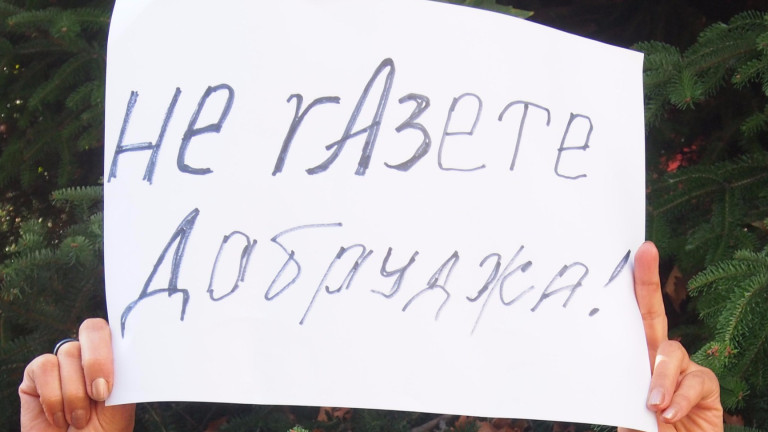 не гАзете
Добруджа!